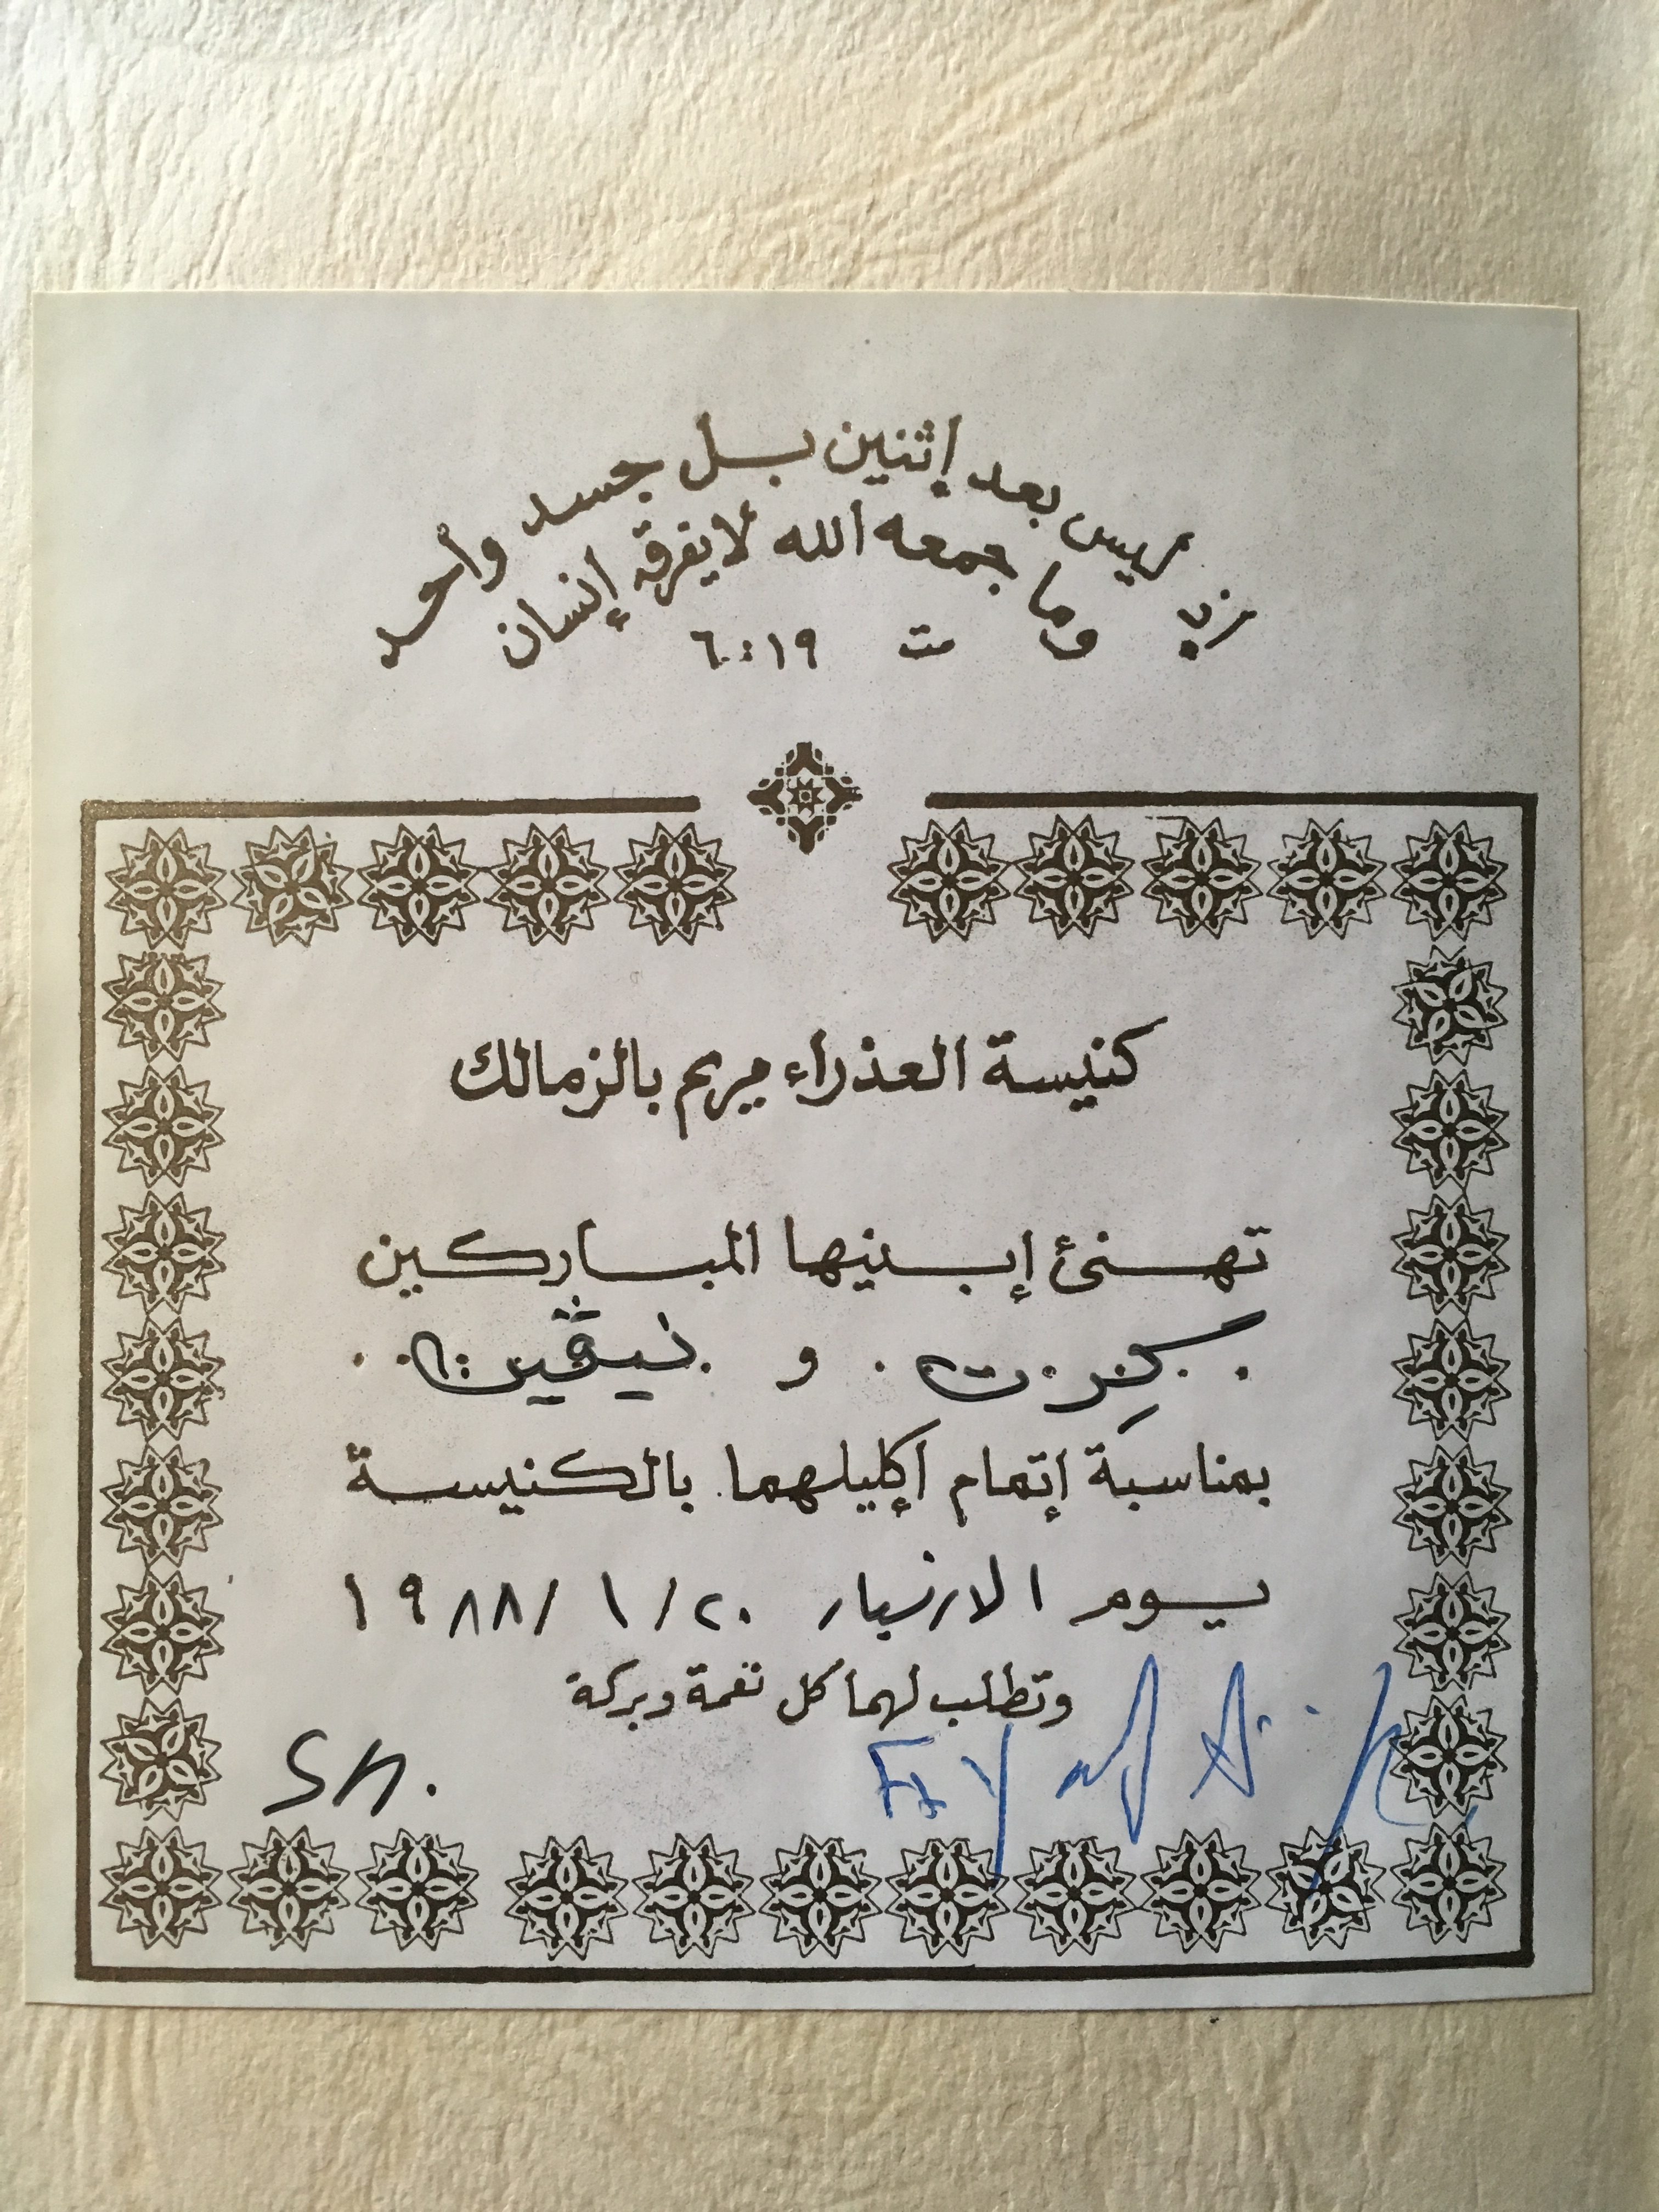 إذ ليس بعد إثنين بل جسد واحد
وما جمعه الله لا يفرقه إنسان
مت ١٩:٦
كنيسة العذراء مريم بالزمالك
تهنئ إبنيها المباركين
و نيڤين
بمناسبة إتمام إكليلهما بالكنيسة
يوم الاربعاء ٢٠/١/١٩٨٨
وتطلب لهما كل نعمة وبركة